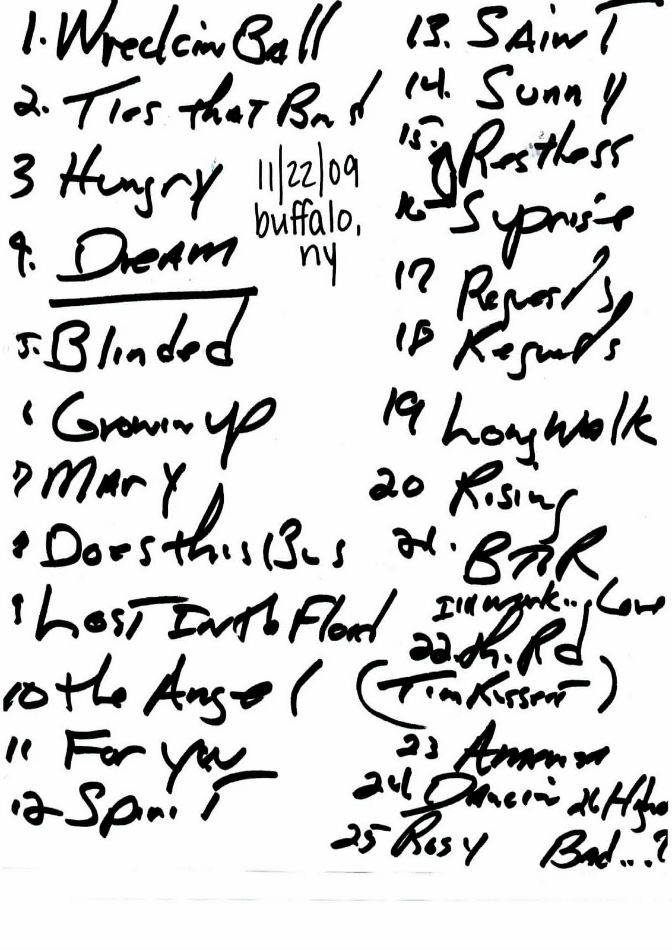 1. Wreckin Ball
2. Ties that Bind
3 Hungry
4. Dream
5. Blinded
6 Growin up
7 MARY
8 Does this Bus
9 Lost In the Flood
10 the Angel
11 For you
12 Spirit
11/22/09
buffalo,
ny
13. SAinT
14. Sunny
15. Restless
16 Suprise
17 Requests
18 Requests
19 Long Walk
20 Rising
21. BTR
Ill work.. Love
22. th. Rd
(Tim Russert)
23 American
24 Dancin 26 Higher
25 Rosy Bad...?